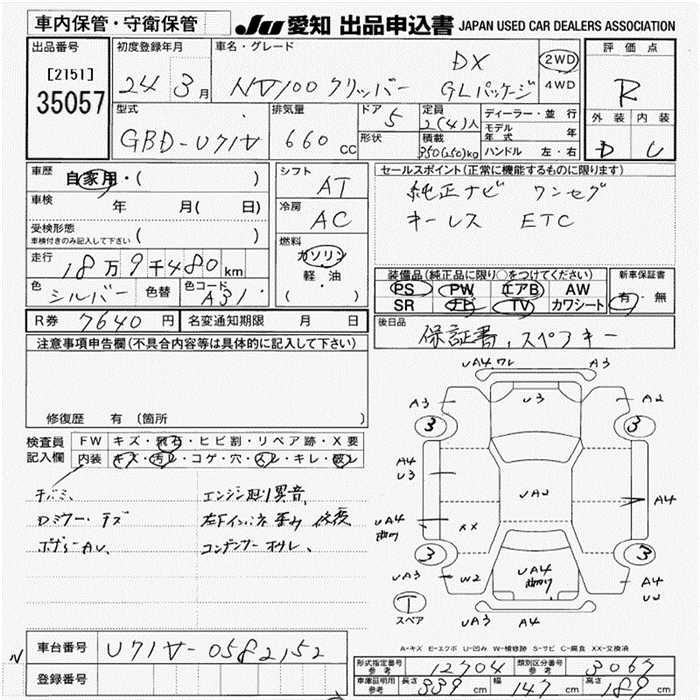 車内保管・守衛保管 JU 愛知 出品申込書 JAPAN USED CAR DEALERS ASSOCIATION
出品番号 初度登録年月 車名・グレード 評価点
[2151] 24年3月 NV100クリッパー DX GLパッケージ 2WD 4WD R
35057 型式 排気量 ドア 定員 ディーラー・並行 外装 内装
GBD-U71V 660cc 5 2(4)人 モデル年式 年 D
形状 積載 350(250)kg ハンドル 左・右
車歴 自家用・( ) シフト AT セールスポイント(正常に機能するものに限ります)
車検 年 月(日) 冷房 AC 純正ナビ ワンセグ
受検形態 車検付きのみ記入して下さい ( ) キーレス ETC
走行 18万9千480km 燃料 ガソリン 軽・油 ( )
装備品(純正品に限り○をつけてください) 新車保証書
PS PW エアB AW 有・無
SR ナビ TV カワシート
色 シルバー 色替 色コード A31
R券 7640円 名変通知期限 月 日 後日品 保証書、スペアキー
注意事項申告欄(不具合内容等は具体的に記入して下さい)
修復歴 有 (箇所 )
検査員記入欄 FW キズ・飛石・ヒビ割・リペア跡・X要
内装 キズ・汚レ・コゲ・穴・スレ・キレ・破レ
エンジン 異音
Dミラー・キズ
UA4 ワレ A3
A3 U3 A2
3 3
A4 U3 UA2 A4
UA4 曲り XX
3 3
UA3 W2 UA4 曲り A4
UA3 A4
T スペア
A-キズ E-エクボ U-凹み W-補修跡 S-サビ C-腐食 XX-交換済
車台番号 U71V-0582152
登録番号
形式指定番号 参考 12704 類別区分番号 参考 3067
車庫証明用 参考 長さ 339cm 幅 147cm 高さ 189cm